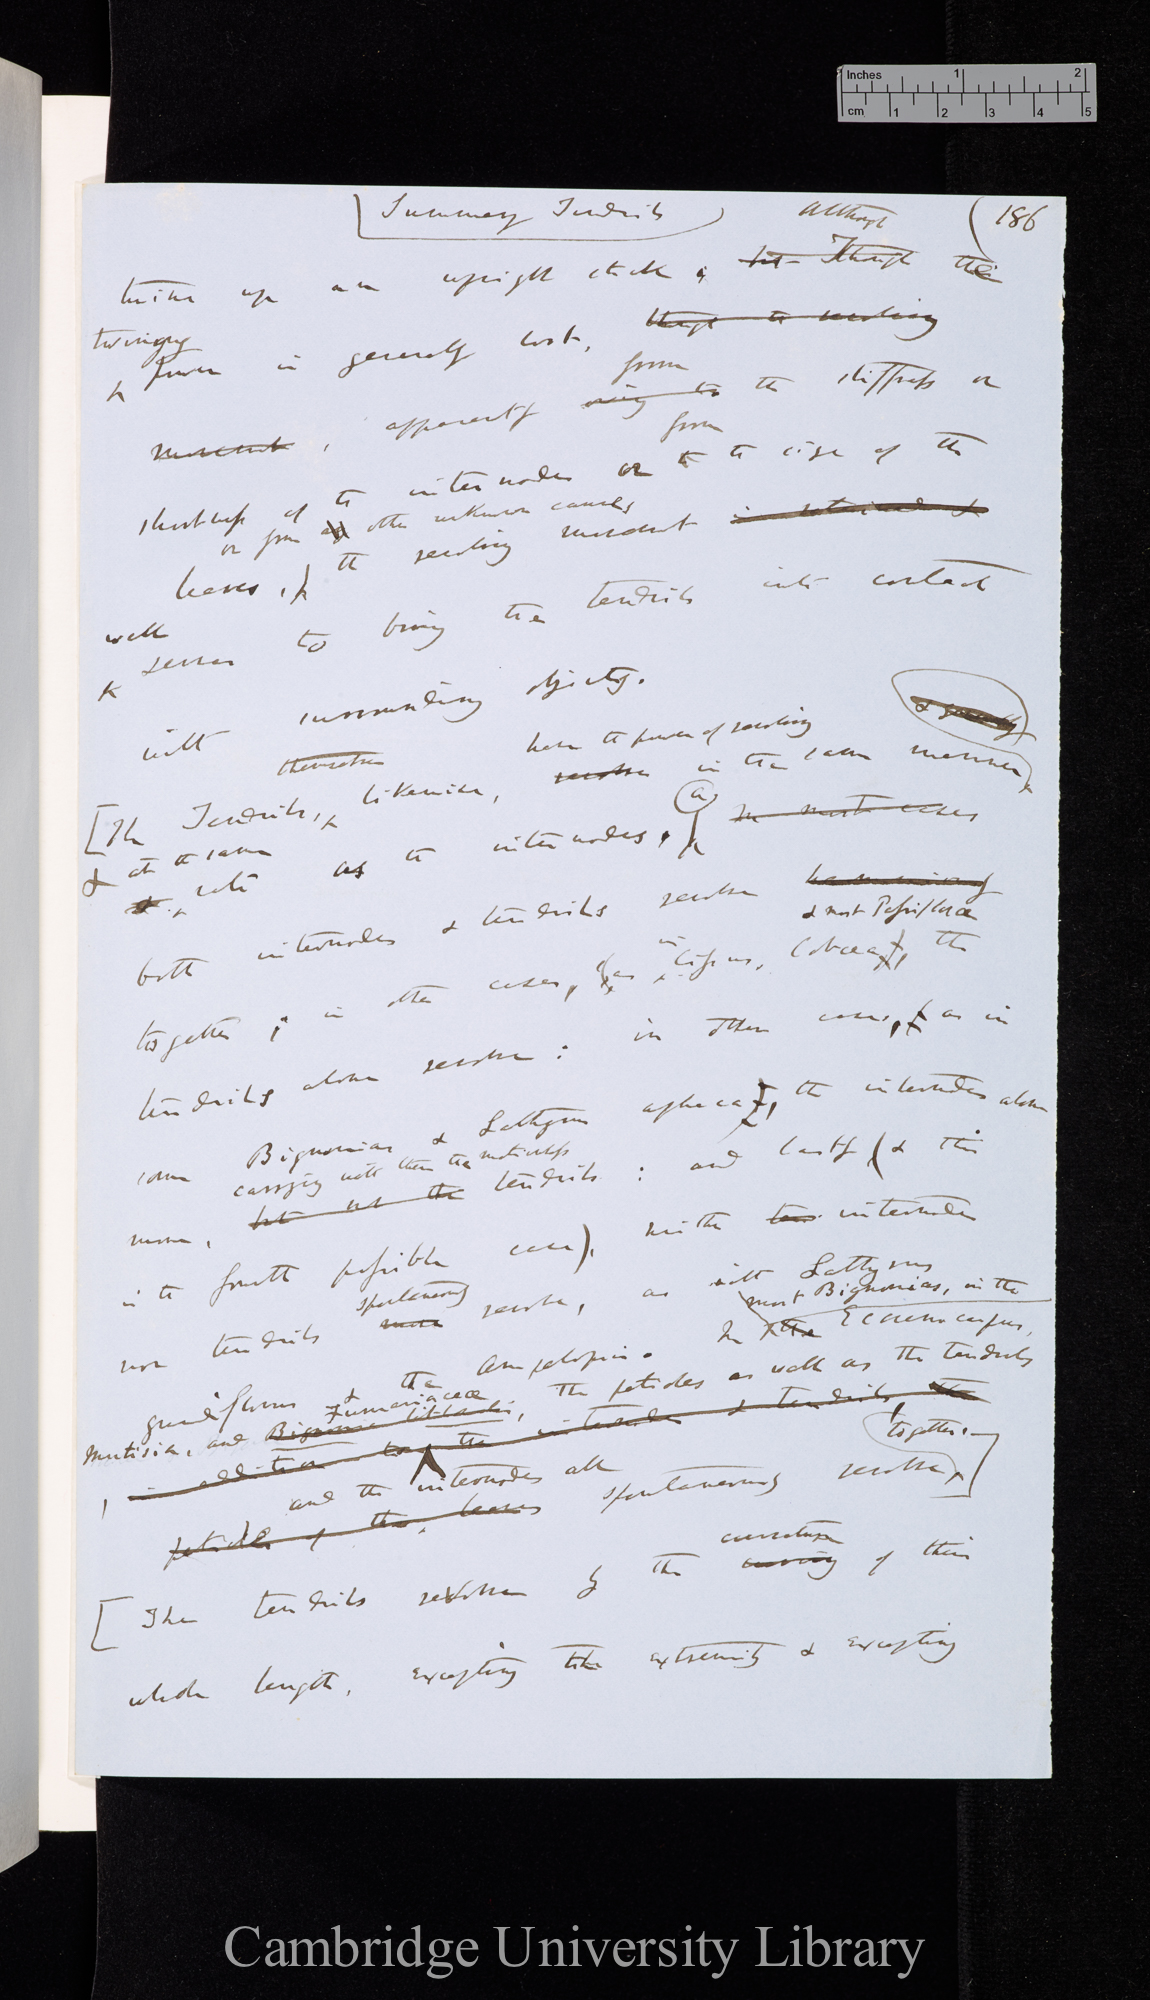 Inches 1 2
cm 1 2 3 4 5
Summary Tendrils
186
although
twine up an upright stick; but Though the
twining
power is generally lost, though the revolving
from
movement, apparently owing to the stiffness or
from
shortness of the internodes or to the size of the
or from other unknown causes
leaves, the revolving movement is retained &
well
serves to bring the tendrils into contact
with surrounding objects.
& generally
themselves have the power of revolving
[The Tendrils, likewise, revolve in the same manner
& at the same
& rate as the internodes, (a) In most cases
both internodes & tendrils revolve harmoniously
& most Passiflorae
in
together; in other cases, (as Cissus, Cobaea), the
tendrils alone revolve: in other cases, (as in
some Bignonias & Lathyrus aphaca), the internodes alone
carrying with them the motionless
move, but not the tendrils: and lastly (& this
is the fourth possible case), neither internodes
spontaneously
nor tendrils move revolve, as with Lathyrus
most Bignonias, in the
grandiflorus & the Ampelopsis. In the Eccremocarpus,
Fumariaceae
Mutisia, and Bignonia littoralis, the petioles as well as the tendrils
, in addition to the internodes & tendrils, the
together.
and the internodes all
petioles of the leaves spontaneously revolve,
curvature
[The tendrils revolve by the curving of their
whole length, excepting the extremity & excepting
Cambridge University Library